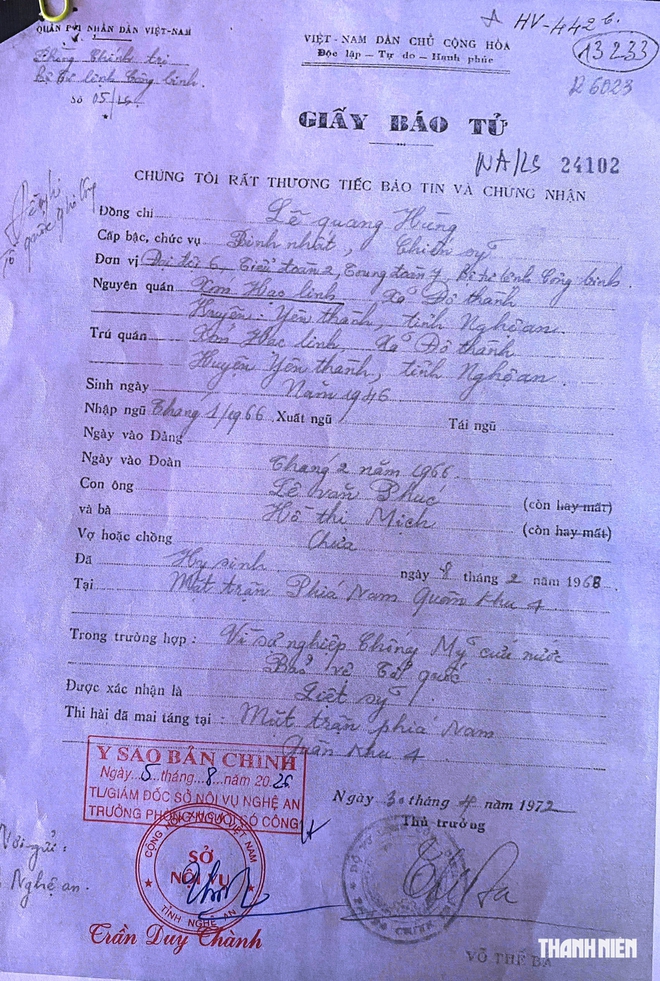 HV-442 c.
QUÂN ĐỘI NHÂN DÂN VIỆT-NAM
Phòng Chính trị
Bộ Tư lệnh Công binh.
Số 05/
VIỆT-NAM DÂN CHỦ CỘNG HÒA
Độc lập – Tự do – Hạnh phúc
13233
R6023
GIẤY BÁO TỬ
NA/LS 24102
CHÚNG TÔI RẤT THƯƠNG TIẾC BÁO TIN VÀ CHỨNG NHẬN
Đồng chí Lê quang Hùng
Cấp bậc, chức vụ Binh nhất, Chiến sỹ
Đơn vị Đại đội 6, Tiểu đoàn 2, Trung đoàn 7, Bộ tư lệnh Công binh.
Nguyên quán Xóm Hạc linh Xã Đô thành
Huyện Yên thành, tỉnh Nghệ an
Trú quán Xóm Hạc linh, Xã Đô thành
Huyện Yên thành, tỉnh Nghệ an.
Sinh ngày Năm 1946
Nhập ngũ Tháng 1/1966 Xuất ngũ Tái ngũ
Ngày vào Đảng
Ngày vào Đoàn Tháng 2 năm 1966
Con ông Lê văn Phúc (còn hay mất)
và bà Hồ thị Mịch (còn hay mất)
Vợ hoặc chồng Chưa
Đã Hy sinh ngày 8 tháng 2 năm 1968
Tại Mặt trận Phía Nam Quân khu 4
Trong trường hợp: Vì sự nghiệp Chống Mỹ cứu nước
Bảo vệ Tổ quốc
Được xác nhận là Liệt sỹ
Thi hài đã mai táng tại: Mặt trận phía Nam
Quân khu 4
Y SAO BẢN CHÍNH
Ngày 5 tháng 8 năm 2025
TL/GIÁM ĐỐC SỞ NỘI VỤ NGHỆ AN
TRƯỞNG PHÒNG NGƯỜI CÓ CÔNG
Ngày 30 tháng 4 năm 1972
Thủ trưởng
Nơi gửi:
Nghệ an.
CỘNG HÒA XHCN VIỆT NAM
SỞ
NỘI VỤ
TỈNH NGHỆ AN
Trần Duy Thành
VÕ THẾ BA
THANH NIÊN